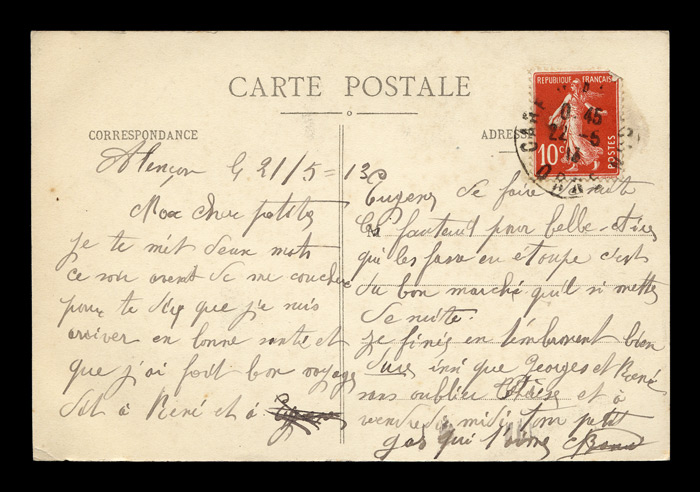 CARTE POSTALE
CORRESPONDANCE
ADRESSE
REPUBLIQUE FRANÇAISE
10c
POSTES
0 45
22 - 5
ORNE
Alençon 21/5 = 13
Mon cher petite
je te mêt deux mots
ce soir avent de me coucher
pour te dire que je suis
arriver en bonne santé et
que j'ai fait bon voyage
dit à René et à
Eugene de faire suite
les fauteuil pour belle
qui les fasse en étoupe c'est
du bon marché qu'il si mettes
de suite.
je finis en t'embrassent bien
dure insi que Georges et René
sans oublier et à
vendredi midi ton petit
gas qui t'aime